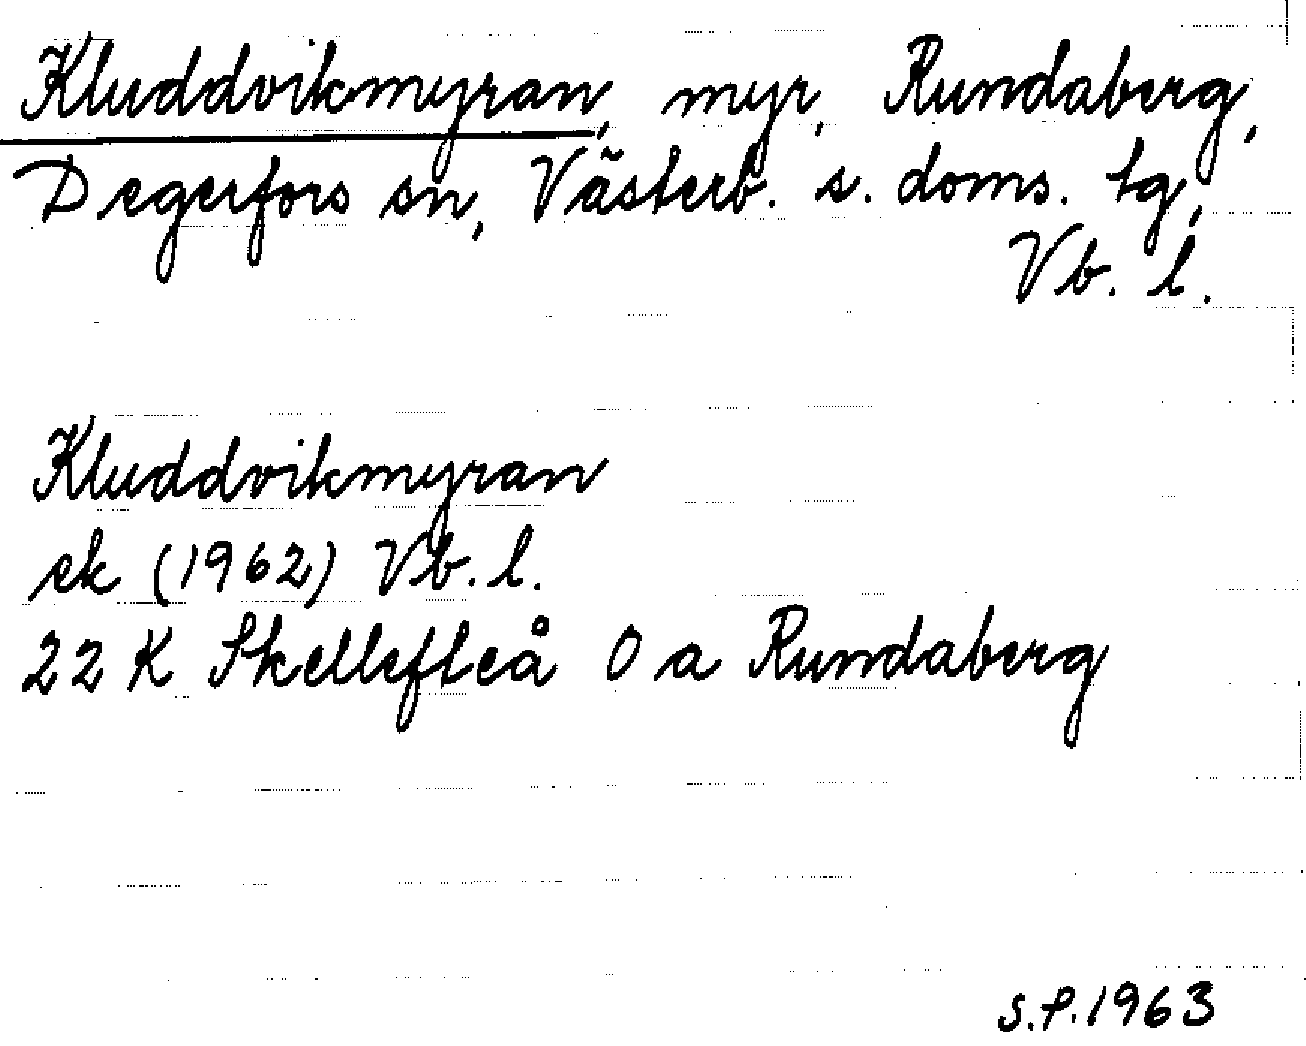 Kluddvikmyran, myr, Rundaberg,
Degerfors sn, Västerb. s. doms. tg,
Vb. l.
Kluddvikmyran
ek (1962) Vb. l.
22 K Skellefteå 0 a Rundaberg
S.P.1963